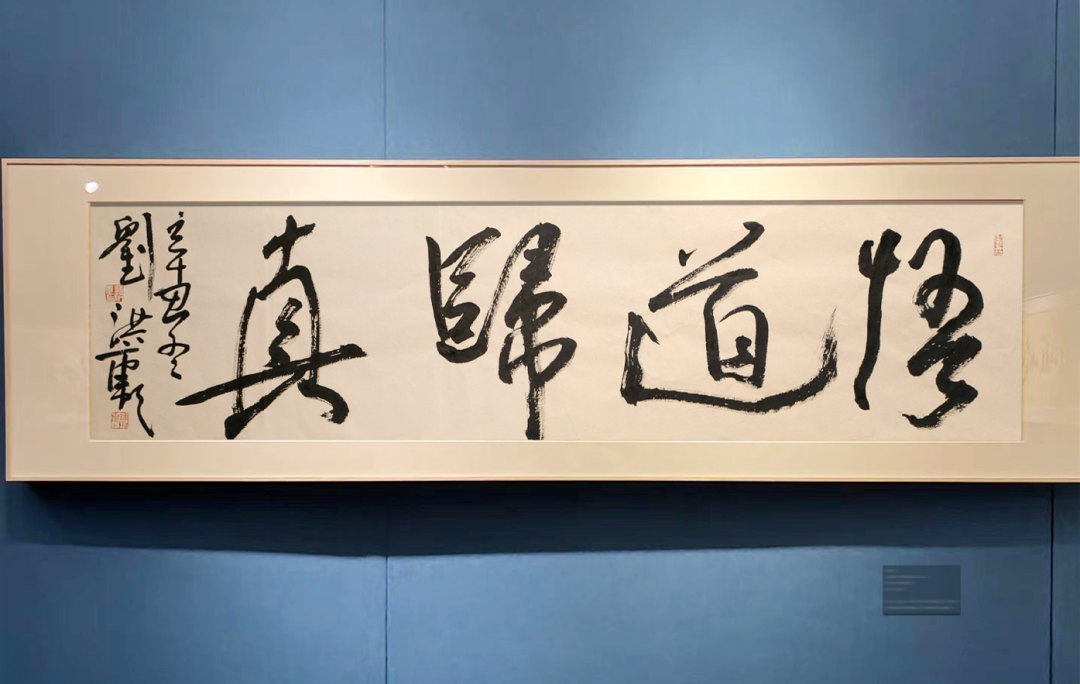 悟道歸真
辛丑冬
劉洪